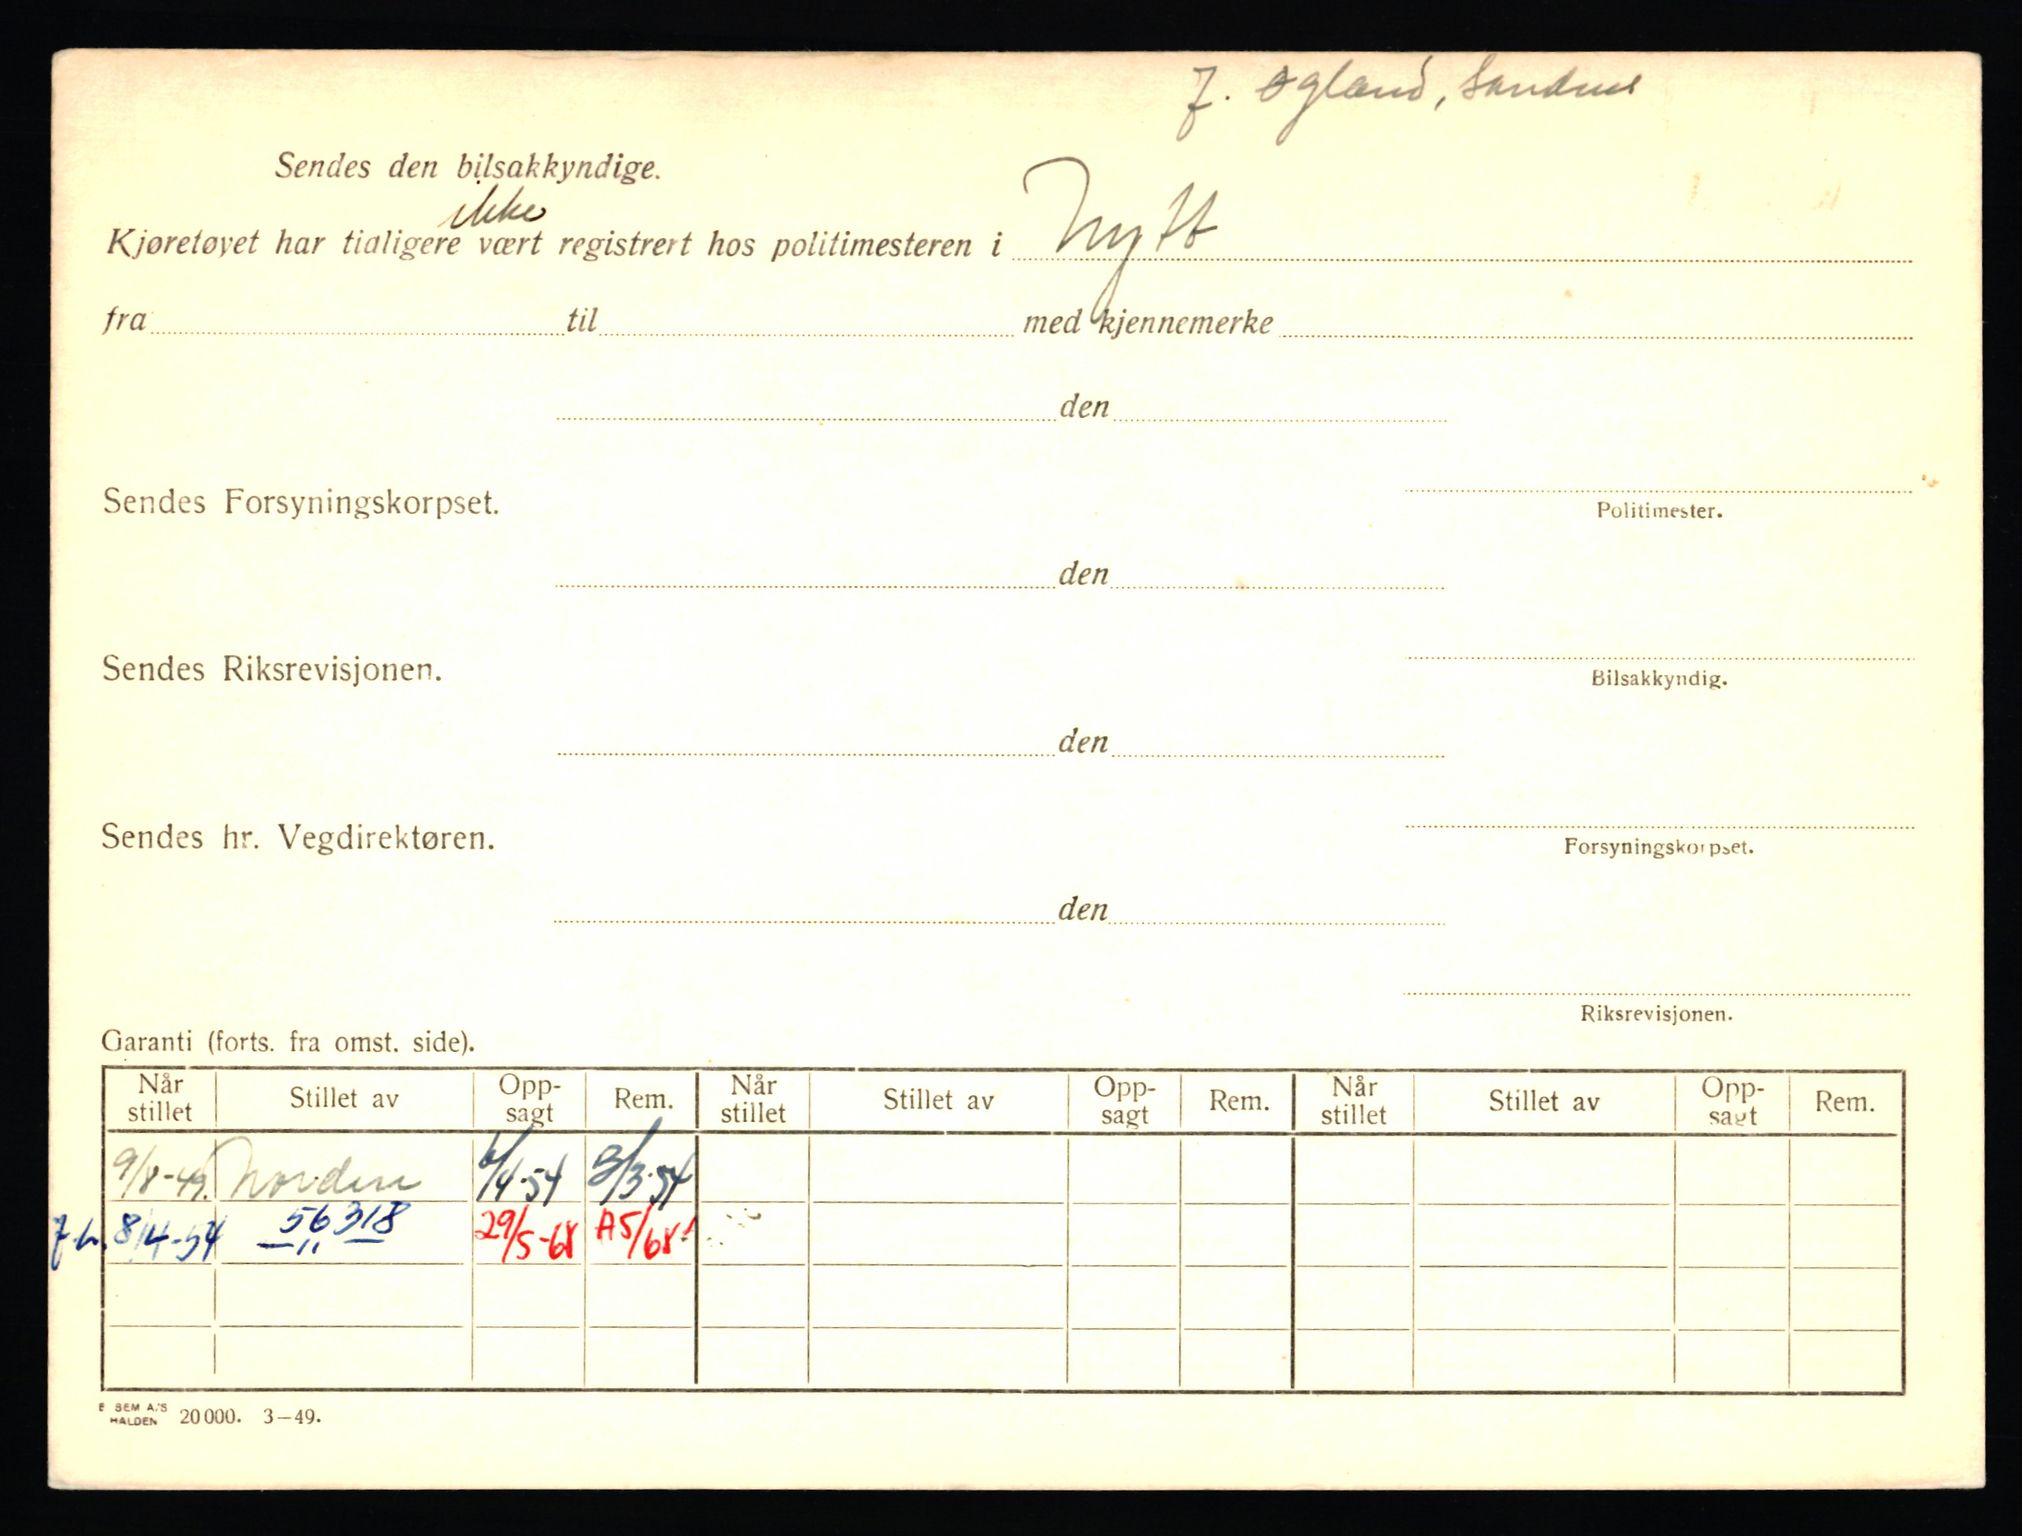 J. Øgland, Sandnes
Sendes den bilsakkyndige.
ikke
Kjøretøyet har tidligere vært registrert hos politimesteren i Nytt
fra til med kjennemerke
den
Sendes Forsyningskorpset.
Politimester.
den
Sendes Riksrevisjonen.
Bilsakkyndig.
den
Sendes hr. Vegdirektøren.
Forsyningskorpset.
den
Riksrevisjonen.
Garanti (forts. fra omst. side).
Når stillet Stillet av Opp-sagt Rem. Når stillet Stillet av Opp-sagt Rem. Når stillet Stillet av Opp-sagt Rem.
9/8-49. Norden 6/4-54 3/3-54
8/4-54 56318 29/5-68 A5/68
E SEM A/S HALDEN 20000. 3-49.